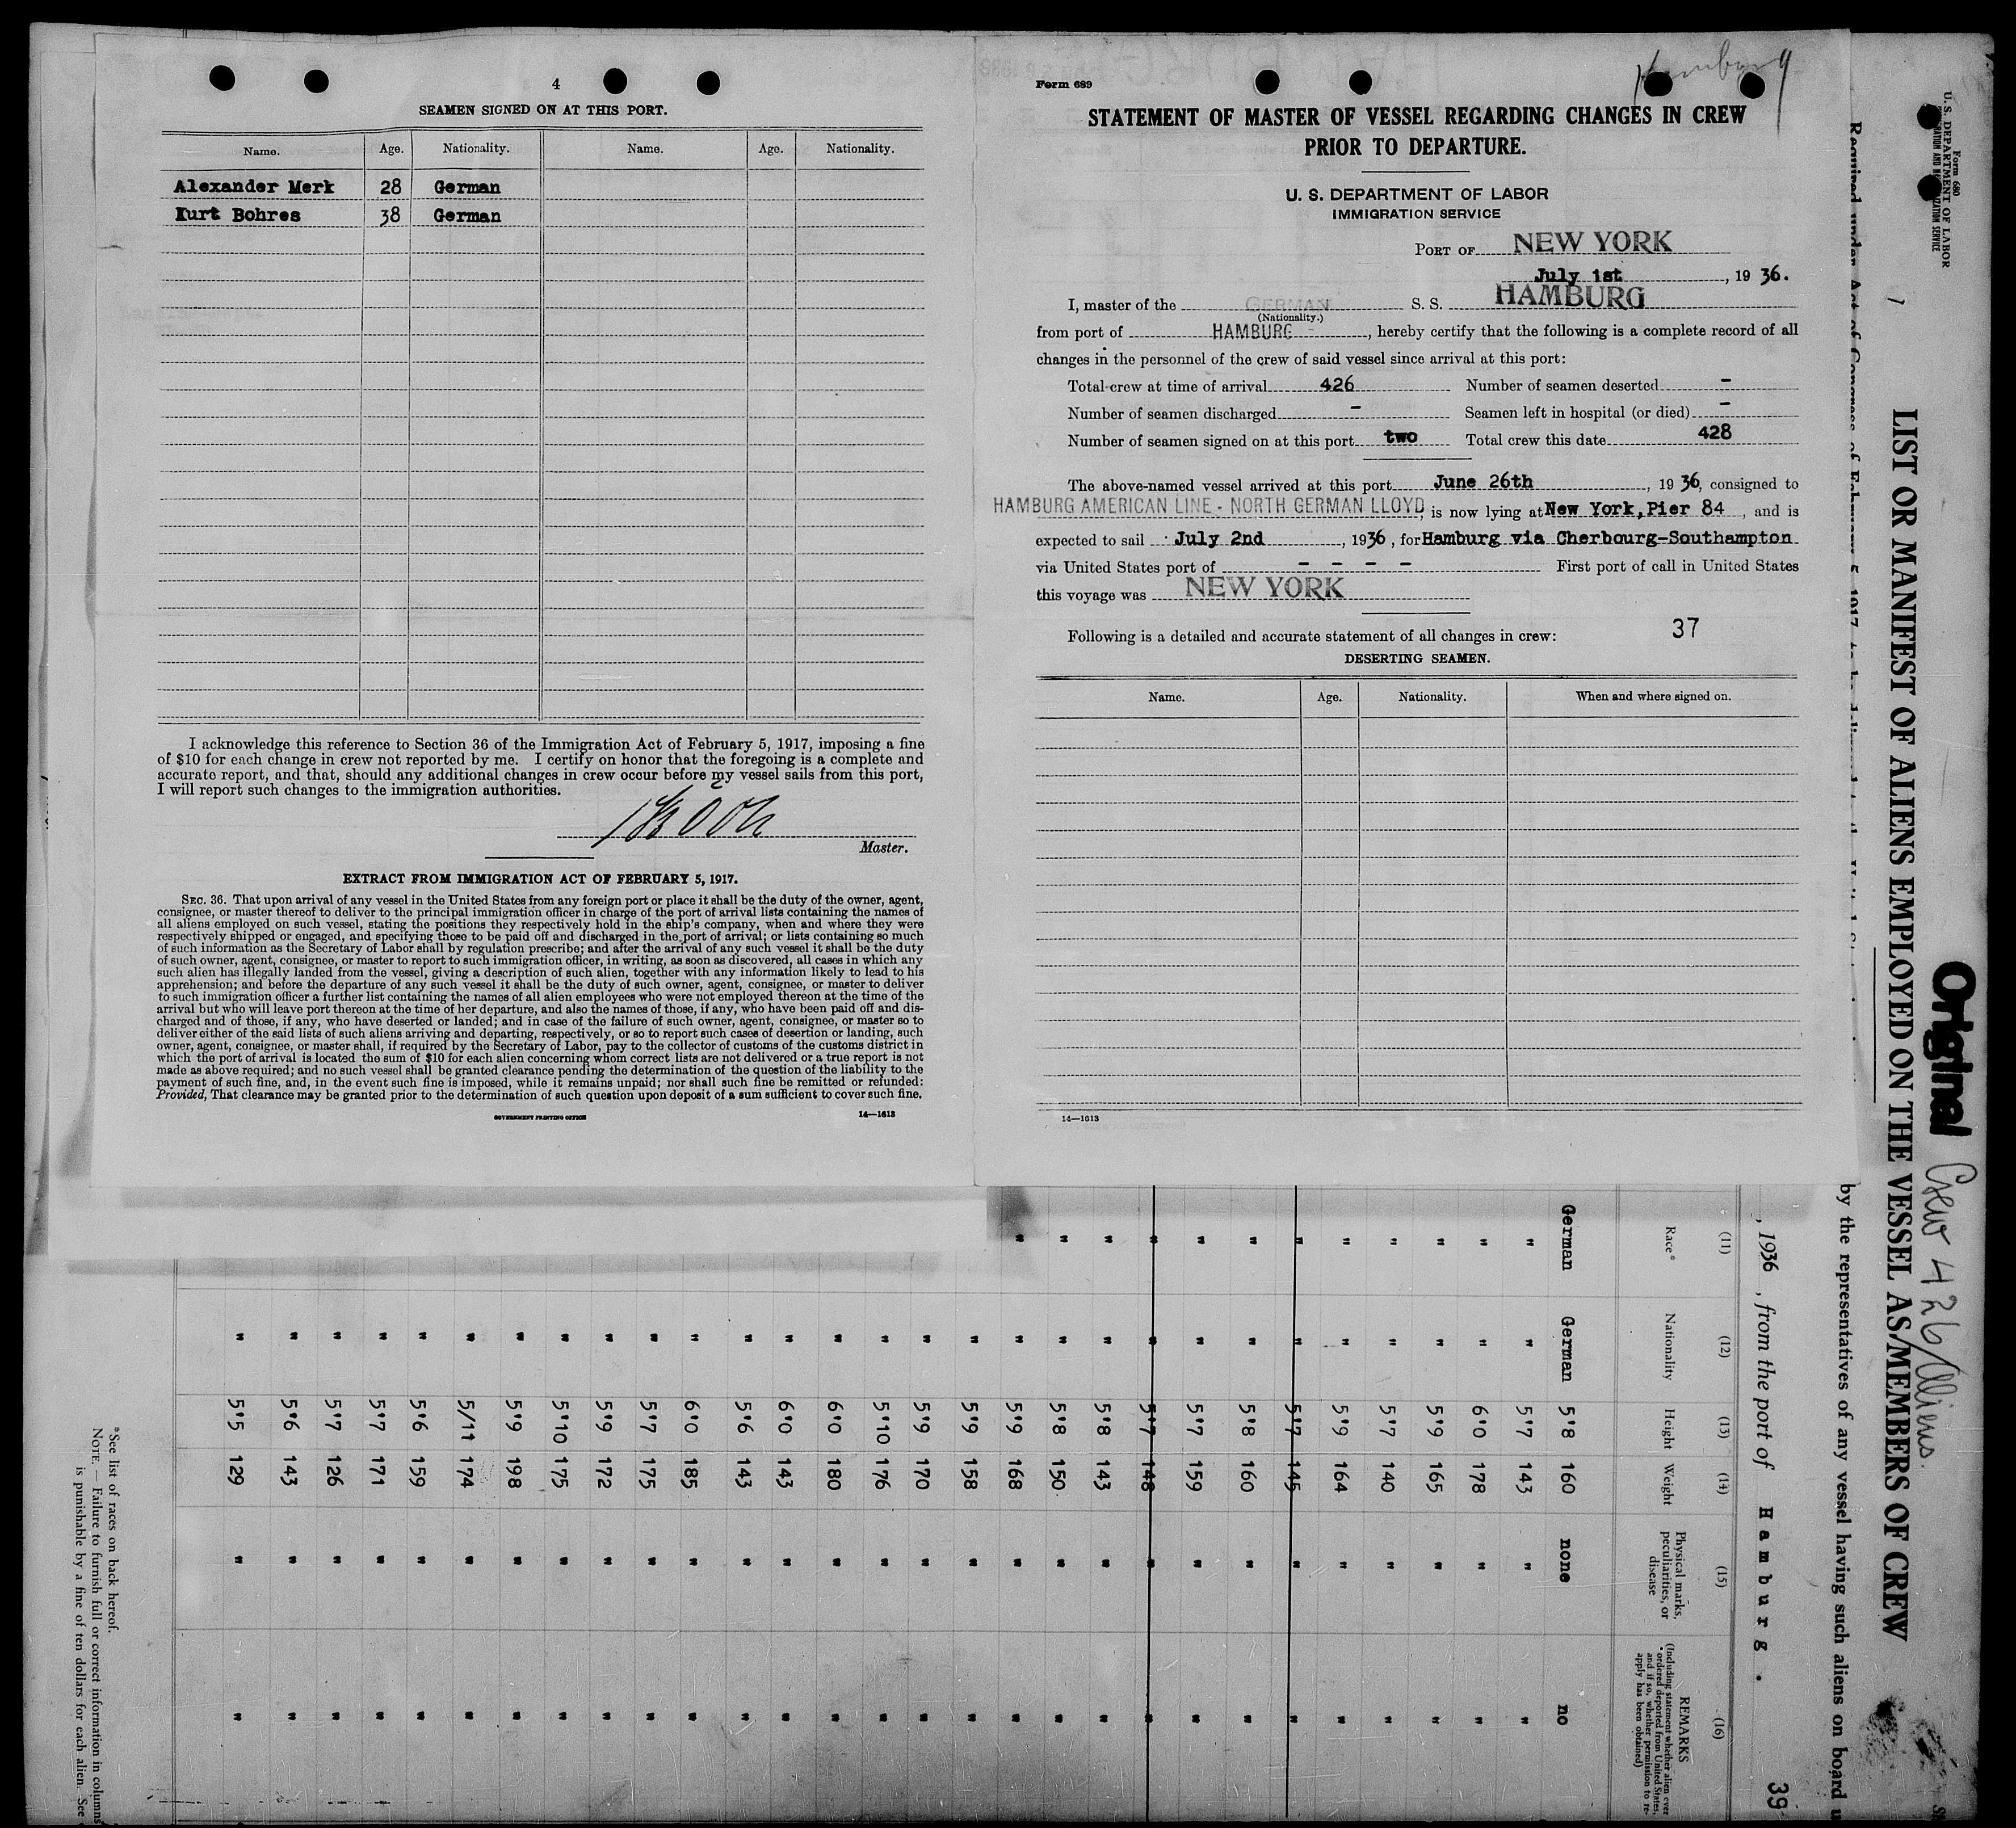 4
SEAMEN SIGNED ON AT THIS PORT.
Name. Age. Nationality. Name. Age. Nationality.
Alexander Merk 28 German
Kurt Bohres 38 German
I acknowledge this reference to Section 36 of the Immigration Act of February 5, 1917, imposing a fine
of $10 for each change in crew not reported by me. I certify on honor that the foregoing is a complete and
accurate report, and that, should any additional changes in crew occur before my vessel sails from this port,
I will report such changes to the immigration authorities.
Master.
EXTRACT FROM IMMIGRATION ACT OF FEBRUARY 5, 1917.
SEC. 36. That upon arrival of any vessel in the United States from any foreign port or place it shall be the duty of the owner, agent,
consignee, or master thereof to deliver to the principal immigration officer in charge of the port of arrival lists containing the names of
all aliens employed on such vessel, stating the positions they respectively hold in the ship's company, when and where they were
respectively shipped or engaged, and specifying those to be paid off and discharged in the port of arrival; or lists containing so much
of such information as the Secretary of Labor shall by regulation prescribe; and after the arrival of any such vessel it shall be the duty
of such owner, agent, consignee, or master to report to such immigration officer, in writing, as soon as discovered, all cases in which any
such alien has illegally landed from the vessel, giving a description of such alien, together with any information likely to lead to his
apprehension; and before the departure of any such vessel it shall be the duty of such owner, agent, consignee, or master to deliver
to such immigration officer a further list containing the names of all alien employees who were not employed thereon at the time of the
arrival but who will leave port thereon at the time of her departure, and also the names of those, if any, who have been paid off and dis-
charged and of those, if any, who have deserted or landed; and in case of the failure of such owner, agent, consignee, or master so to
deliver either of the said lists of such aliens arriving and departing, respectively, or so to report such cases of desertion or landing, such
owner, agent, consignee, or master shall, if required by the Secretary of Labor, pay to the collector of customs of the customs district in
which the port of arrival is located the sum of $10 for each alien concerning whom correct lists are not delivered or a true report is not
made as above required; and no such vessel shall be granted clearance pending the determination of the question of the liability to the
payment of such fine, and, in the event such fine is imposed, while it remains unpaid; nor shall such fine be remitted or refunded:
Provided, That clearance may be granted prior to the determination of such question upon deposit of a sum sufficient to cover such fine.
GOVERNMENT PRINTING OFFICE 14—1613
Hamburg
Form 689
STATEMENT OF MASTER OF VESSEL REGARDING CHANGES IN CREW
PRIOR TO DEPARTURE.
U. S. DEPARTMENT OF LABOR
IMMIGRATION SERVICE
PORT OF NEW YORK
July 1st, 1936.
I, master of the GERMAN S. S. HAMBURG
(Nationality.)
from port of HAMBURG, hereby certify that the following is a complete record of all
changes in the personnel of the crew of said vessel since arrival at this port:
Total crew at time of arrival 426 Number of seamen deserted -
Number of seamen discharged - Seamen left in hospital (or died) -
Number of seamen signed on at this port two Total crew this date 428
The above-named vessel arrived at this port June 26th, 1936, consigned to
HAMBURG AMERICAN LINE - NORTH GERMAN LLOYD, is now lying at New York, Pier 84, and is
expected to sail July 2nd, 1936, for Hamburg via Cherbourg-Southampton
via United States port of - - - - First port of call in United States
this voyage was NEW YORK
37
Following is a detailed and accurate statement of all changes in crew:
DESERTING SEAMEN.
Name. Age. Nationality. When and where signed on.
14—1613
Form 680
U. S. DEPARTMENT OF LABOR
Original Crew 426 Aliens.
LIST OR MANIFEST OF ALIENS EMPLOYED ON THE VESSEL AS MEMBERS OF CREW
by the representatives of any vessel having such aliens on board
, 1936, from the port of Hamburg. 39
(11) (12) (13) (14) (15) (16)
Race* Nationality Height Weight Physical marks, peculiarities, or disease REMARKS
(Including statement whether alien ever
ordered deported from United States,
and if so, whether permission to re-
apply has been obtained)
German German 5'8 160 none no
" " 5'7 143 " "
" " 6'0 178 " "
" " 5'9 165 " "
" " 5'7 140 " "
" " 5'9 164 " "
" " 5'7 145 " "
" " 5'8 160 " "
" " 5'7 159 " "
" " 5'7 148 " "
" " 5'8 143 " "
" " 5'8 150 " "
" " 5'9 168 " "
" 5'9 158 " "
" 5'9 170 " "
" 5'10 176 " "
" 6'0 180 " "
" 6'0 143 " "
" 5'6 143 " "
" 6'0 185 " "
" 5'7 175 " "
" 5'9 172 " "
" 5'10 175 " "
" 5'9 198 " "
" 5/11 174 " "
" 5'6 159 " "
" 5'7 171 " "
" 5'7 126 " "
" 5'6 143 " "
" 5'5 129 " "
*See list of races on back hereof.
NOTE. — Failure to furnish full or correct information in columns
is punishable by a fine of ten dollars for each alien. See